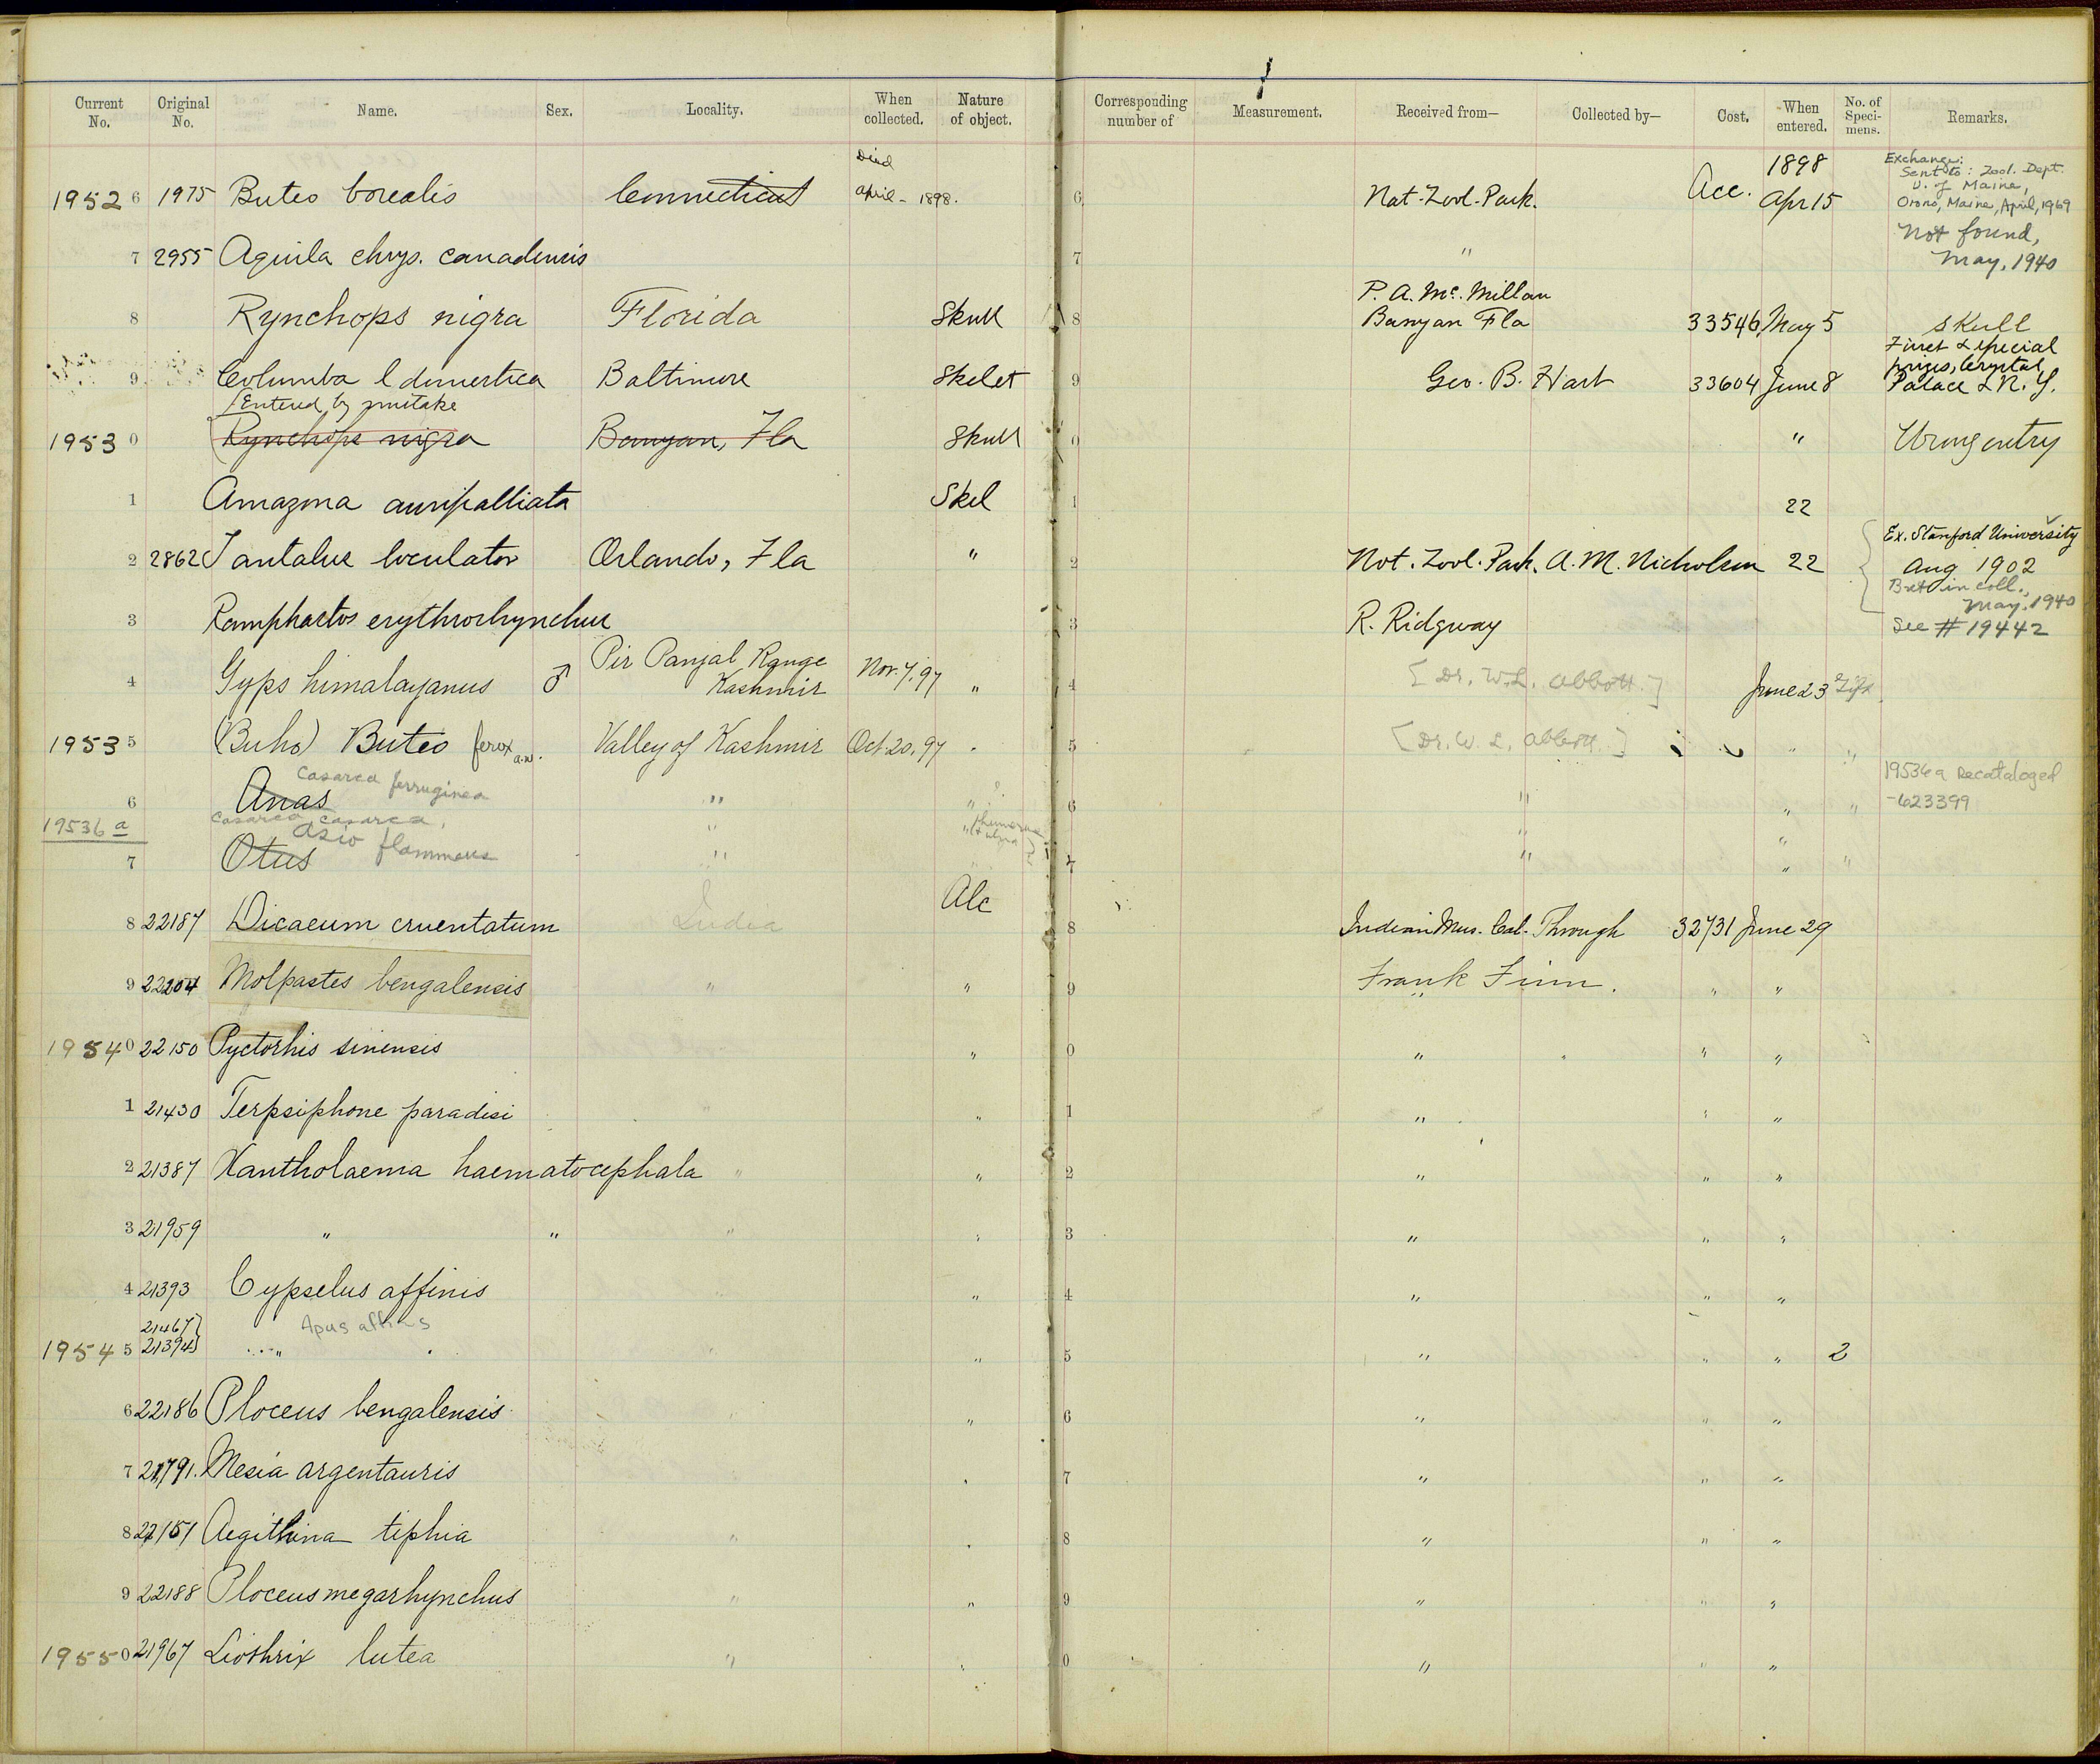 Current No. Original No. Name. Sex. Locality. When collected. Nature of object. Corresponding number of Measurement. Received from— Collected by— Cost. When entered. No. of Speci-mens. Remarks.
Died 1898 Exchange:
19526 1975 Buteo borealis Connecticut April - 1898. 6 Nat. Zool. Park. Acc. Apr 15 Sent to: Zool. Dept.
U. of Maine,
Orono, Maine, April, 1969
7 2955 Aquila chrys. canadensis 7 " Not found,
May, 1940
P. A. Mc. Millan
8 Rynchops nigra Florida Skull 8 Banyan Fla 33546 May 5 Skull
First & special
prizes, Crystal
9 Columba l domestica Baltimore Skelet 9 Geo. B. Hart 33604 June 8 Palace & N. Y.
Entered by mistake
19530 Rynchops nigra Banyan, Fla Skull 0 " Wrong entry
1 Amazona auripalliata Skel 1 22
Ex. Stanford University
2 2862 Tantalus loculator Orlando, Fla " 2 Nat. Zool. Park. A. M. Nicholson 22 Aug 1902
But in coll.,
May, 1940
3 Ramphastos erythrorhynchus 3 R. Ridgway See # 19442
4 Gyps himalayanus ♂ Pir Panjal Range Kashmir Nov. 7, 97 " 4 [Dr. W. L. Abbott.] June 23 Gift
19535 (Buho) Buteo ferox a.w. Valley of Kashmir Oct. 20, 97 " 5 [Dr. W. L. Abbott.] " "
Casarca ferruginea 19536a Recataloged
6 Anas " " ? 6 " " " -623399
19536a Casarca casarca, " " (humerus & ulna) " "
Asio flammeus
7 Otus " 7 " " "
8 22187 Dicaeum cruentatum India Alc 8 Indian Mus. Cal. Through 32731 June 29
9 22204 Molpastes bengalensis " " 9 Frank Finn. " "
19540 22150 Pyctorhis sinensis " 0 " " "
1 21430 Terpsiphone paradisi " " 1 " " "
2 21387 Xantholaema haematocephala " " 2 " " "
3 21959 " " " " 3 " " "
4 21393 Cypselus affinis " " 4 " " "
21467 Apus affinis
19545 21394 " " " 5 " " " 2
6 22186 Ploceus bengalensis " " 6 " " "
7 21791. Mesia argentauris " 7 " " "
8 22151 Aegithina tiphia " " 8 " " "
9 22188 Ploceus megarhynchus " " 9 " " "
19550 21967 Liothrix lutea " " 0 " " "